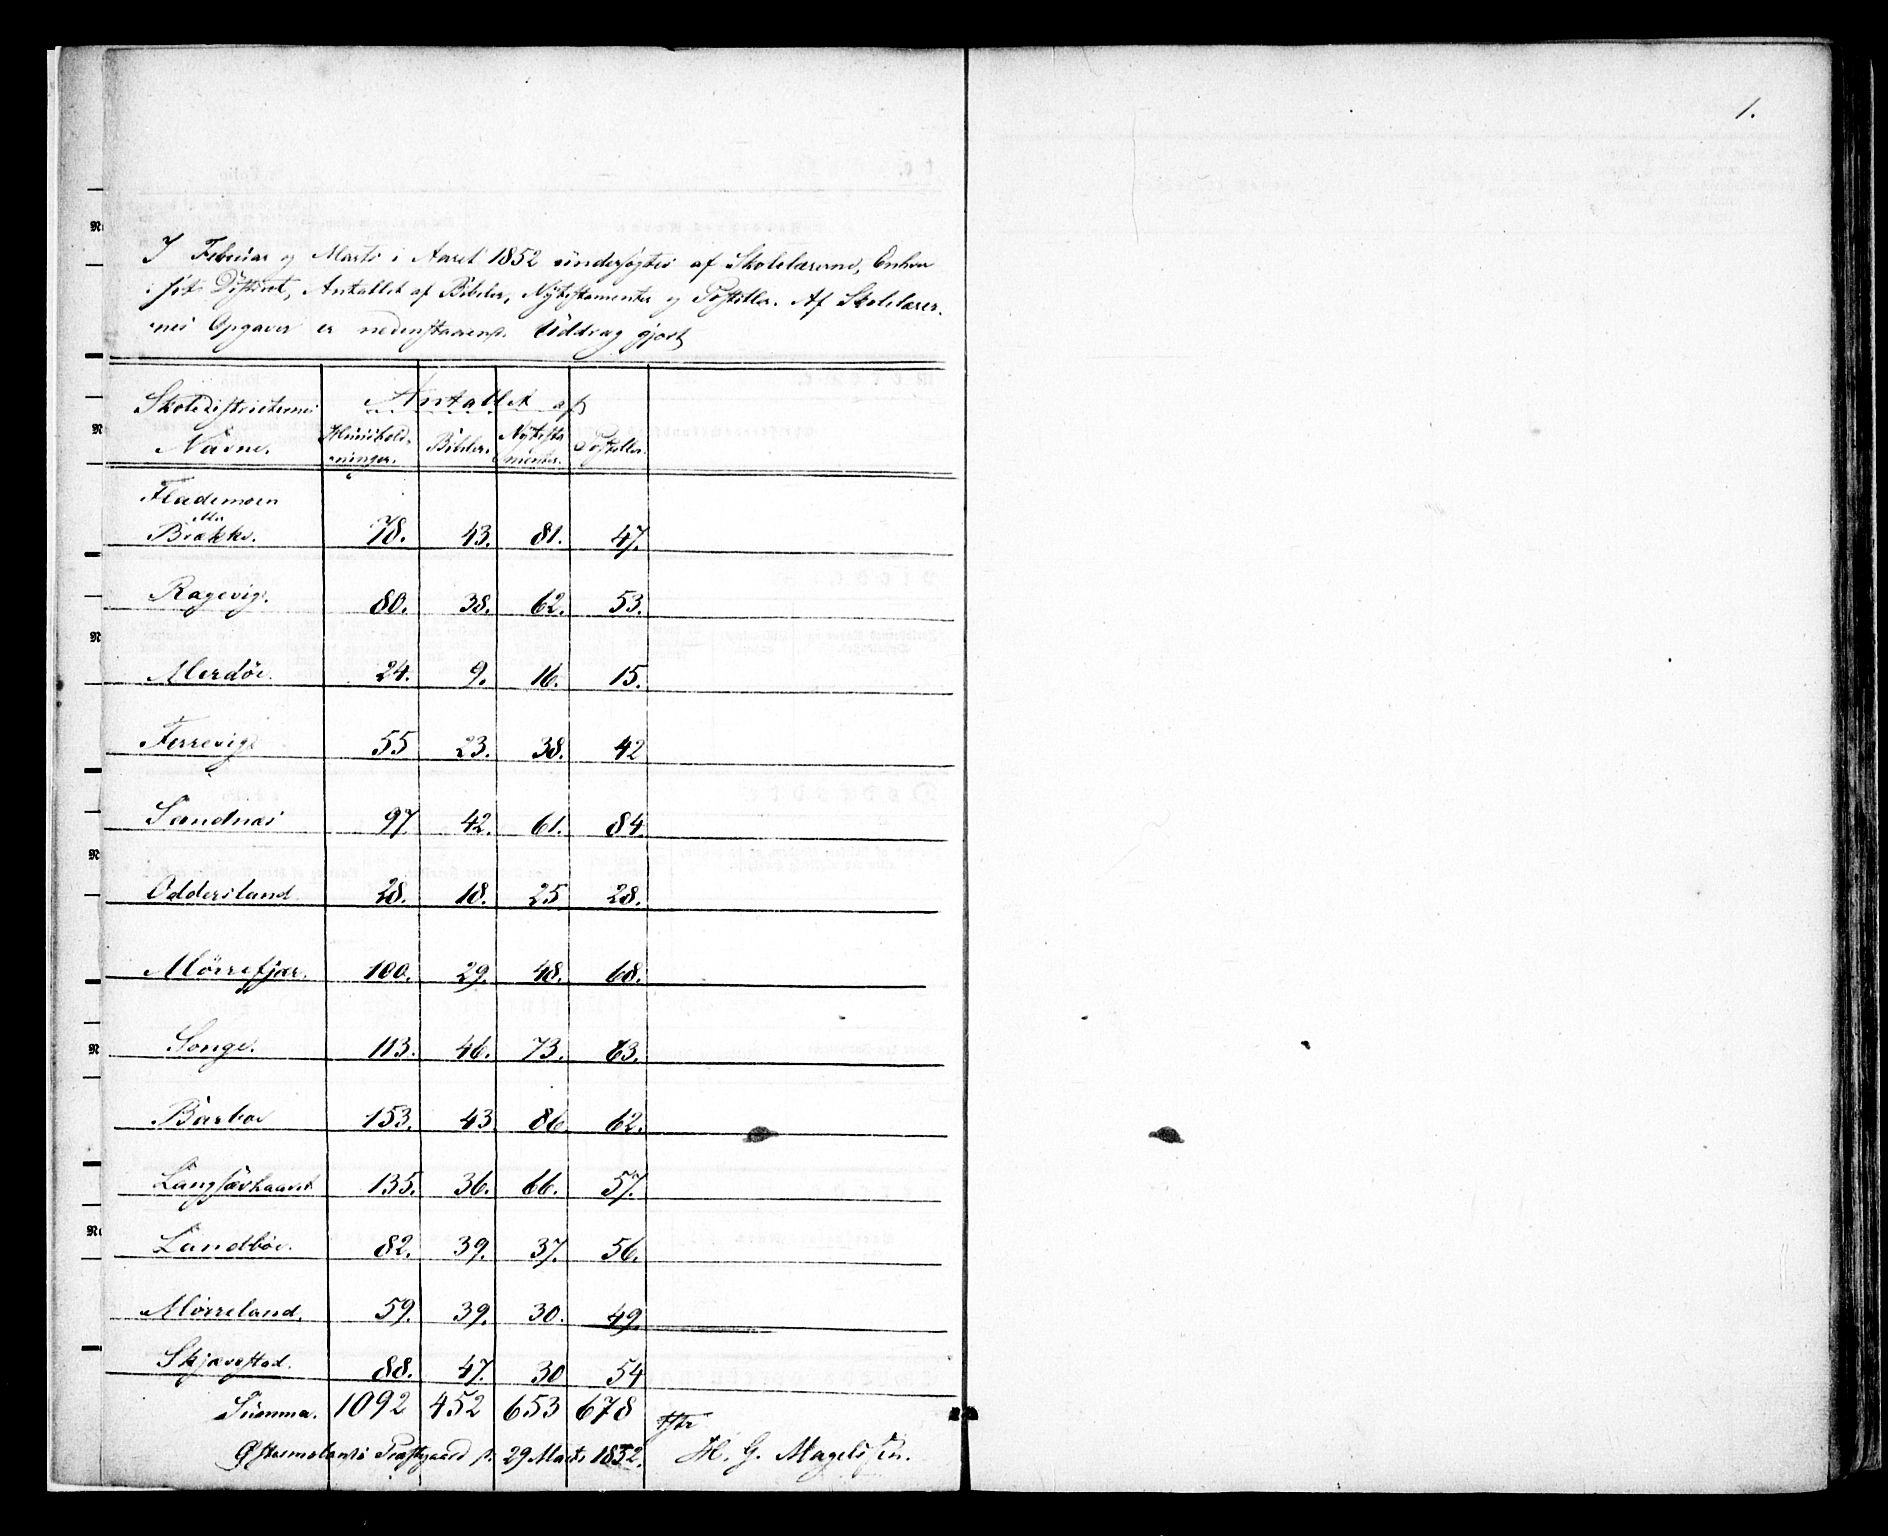 1.
I Februar og Marts i Aaret 1852 undersøgtes af Skolelærerne, Enhver
i sit District, Antallet af Bibler, Nytestamenter og Postiller. Af Skolelærer-
nes Opgaver er nedenstaaende Uddrag gjort
Skoledistricternes Navne. Antallet af
Huushold-ninger. Bibler. Nytesta-menter. Postiller.
Flademoen
eller
Brække. 78. 43. 81. 47.
Ragevig. 80. 38. 62. 53.
Merdøe. 24. 9. 16. 15.
Ferrevig 55 23. 38. 42
Sandnæs 97 42. 61. 84.
Oddersland 28. 18. 25 28.
Mørrefjær. 100. 29. 48. 68.
Songe. 113. 46. 73. 63.
Barboe 153. 43 86. 62.
Langsævhaavet 135. 36. 66. 57.
Landbøe. 82. 39. 37. 56.
Mørreland. 59. 39. 30. 49.
Skjævestad. 88. 47. 30 54
Summa. 1092 452 653 678
Østremolands Præstegaard d. 29 Marts 1852.
H. G. Magelssen.